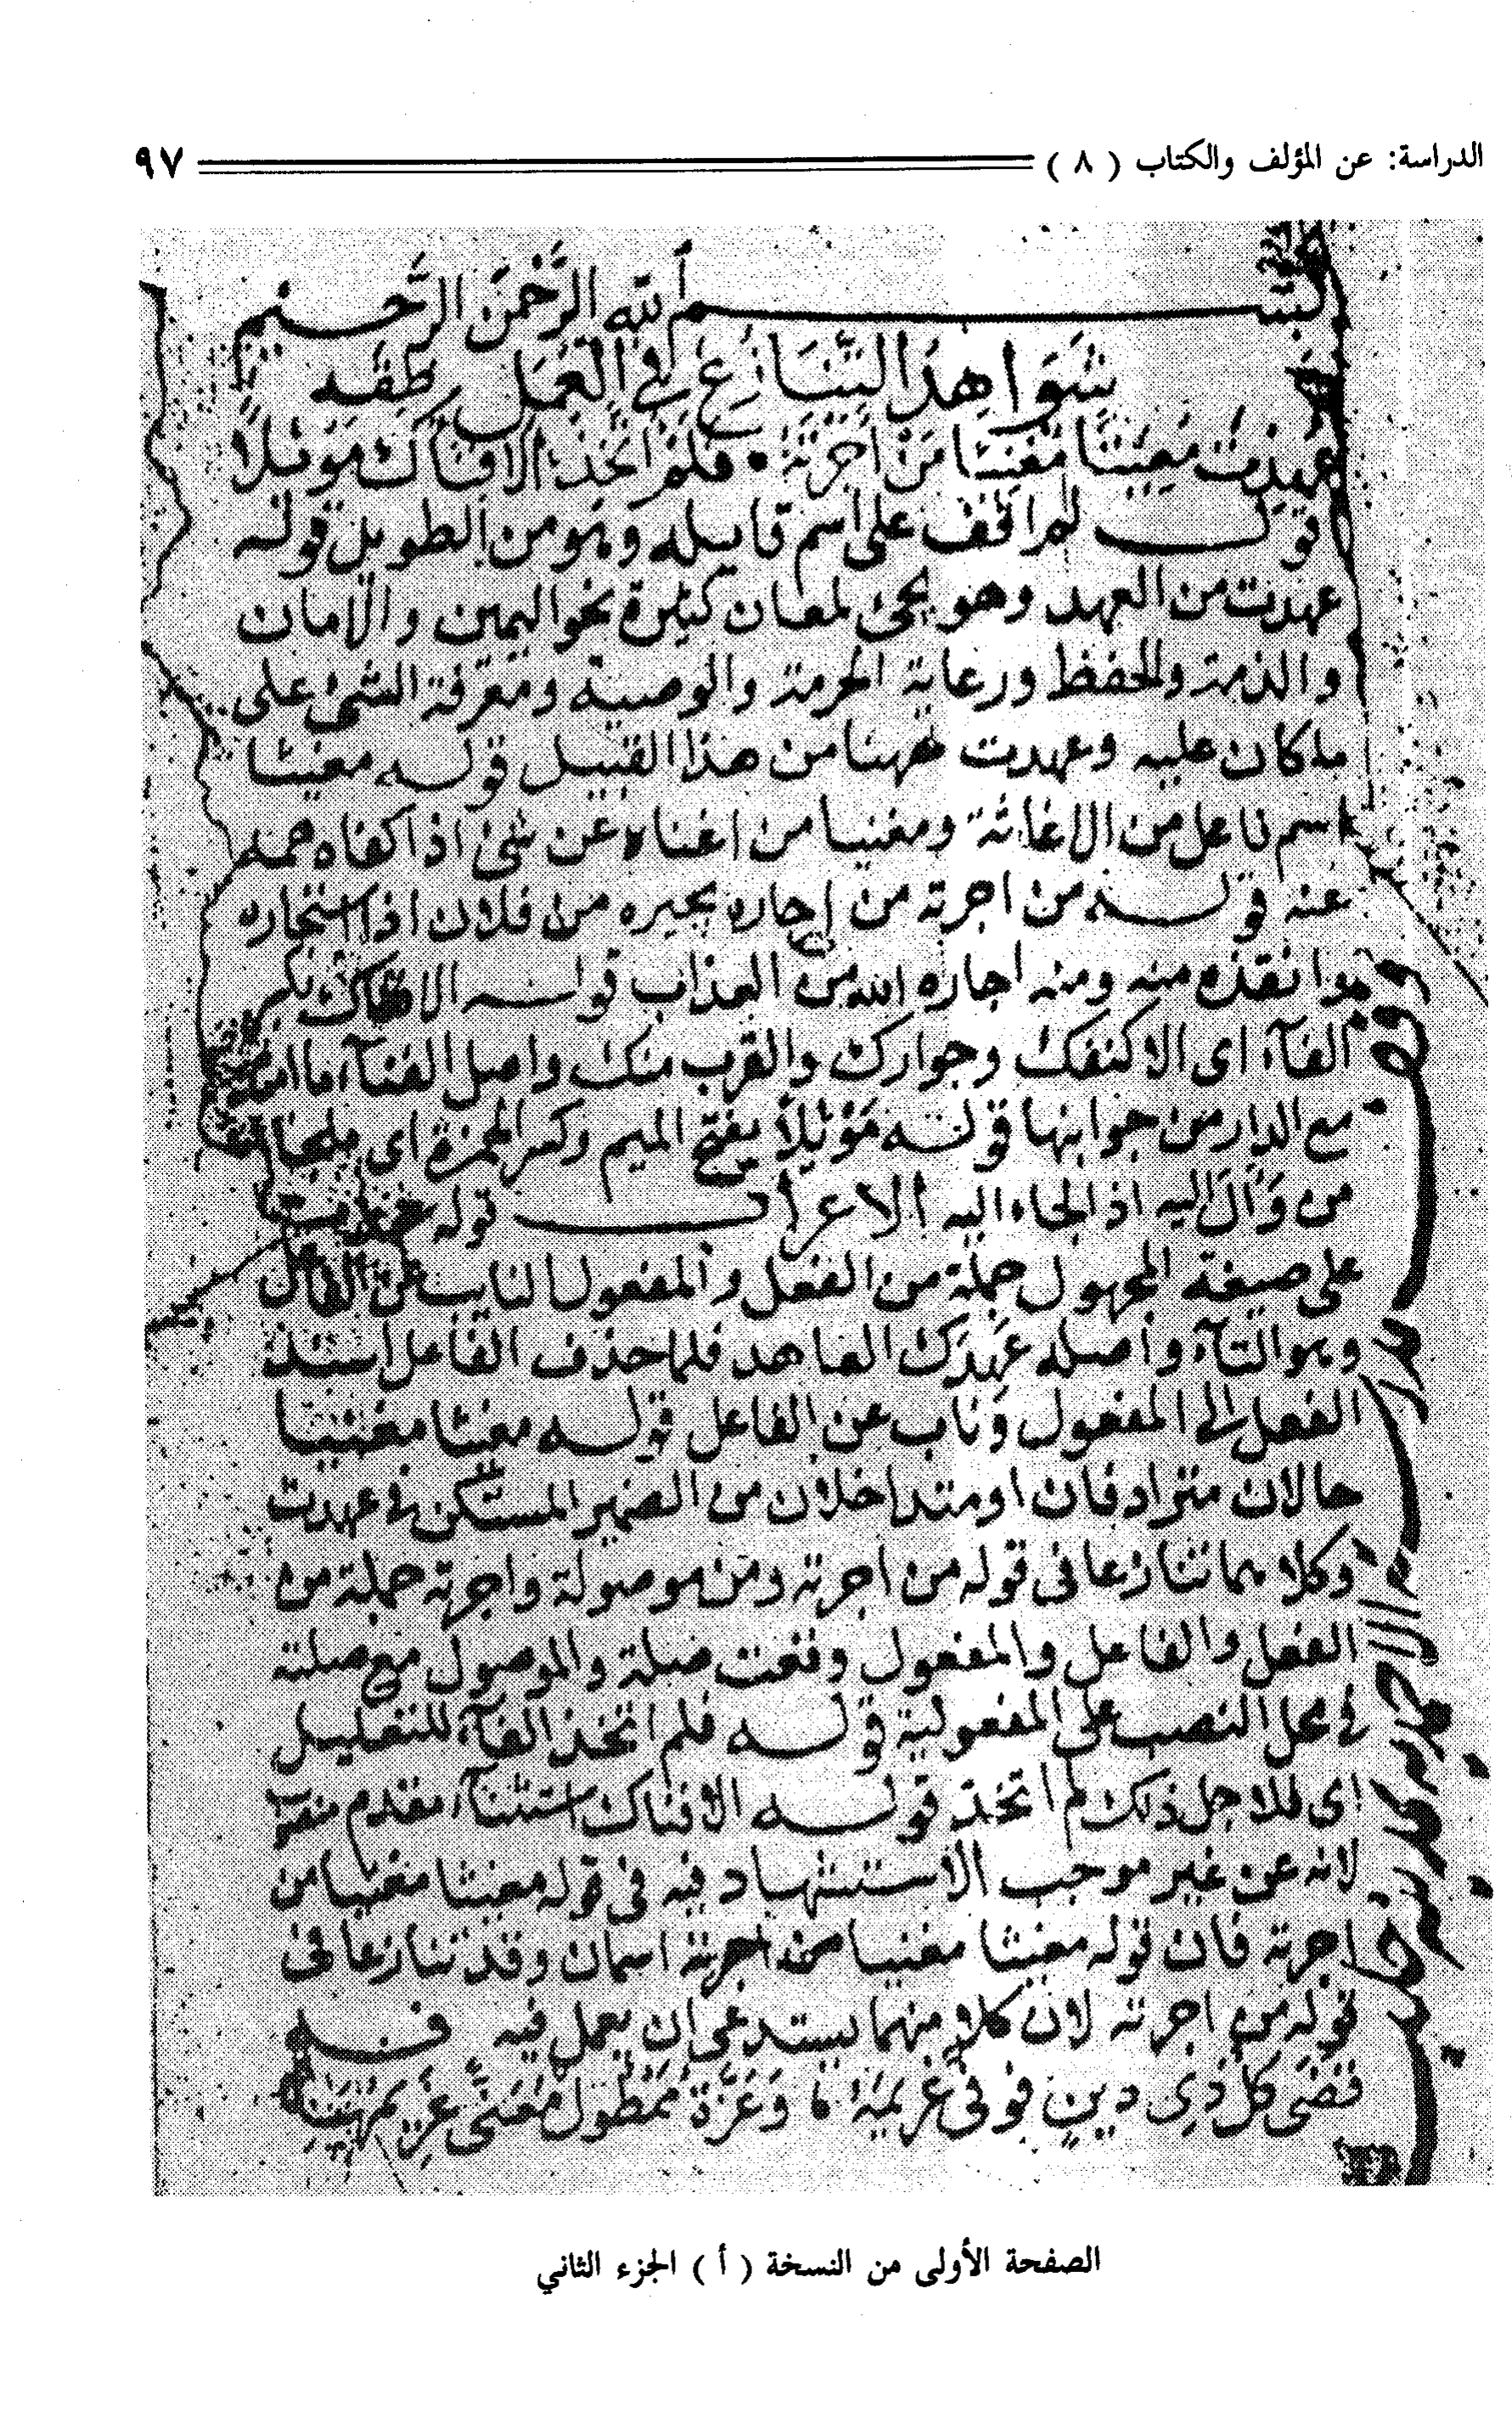 الدراسة: عن المؤلف والكتاب ( ٨ ) ٩٧
بسم الله الرحمن الرحيم
شَوَاهِدُ التَّنَازُعِ فِي الْعَمَلِ ظقه
عُهِدْتَ مُغِيثًا مُغْنِيًا مَنْ أَجَرْتَهُ فلم اتخذ الا فناك موئلا
قوله لم اقف على اسم قايله وهو من الطويل قوله
عهدت من العهد وهو يجئ لمعان كثيرة نحو اليمين والامان
والذمة والحفظ ورعاية الحرمة والوصية ومعرفة الشئ على
ما كان عليه وعهدت ههنا من هذا القبيل قوله مغيثا
اسم فاعل من الاغاثة ومغنيا من اغناه عن شئ اذا كفاه همه
عنه قوله من اجرته من اجاره يجيره من فلان اذا استجاره
وانقذه منه ومنه اجاره الله من العذاب قوله الا فناك بكسر
الفآء اى الا كنفك وجوارك والقرب منك واصل الفنآء ما امتد
مع الدار من جوانبها قوله مَوْئِلاً بفتح الميم وكسر الهمزة اى ملجأ
من وَأَلَ اليه اذا لجاء اليه الاعراب قوله عهدت
على صيغة المجهول جملة من الفعل والمفعول النايب عن الفاعل
وهو التآء واصله عَهِدَكَ العاهد فلما حذف الفاعل اسند
الفعل الى المفعول وناب عن الفاعل قوله مغيثا مغنيا
حالان مترادفان او متداخلان من الضمير المستكن فى عهدت
وكلاهما تنازعا فى قوله من اجرته ومن موصولة واجرته جملة من
الفعل والفاعل والمفعول وقعت صلة والموصول مع صلته
فى محل النصب على المفعولية قوله فلم اتخذ الفآء للتعليل
اى فلاجل ذلك لم اتخذ قوله الا فناك استثنآء مقدم
لانه عن غير موجب الاستشهاد فيه فى قوله مغيثا مغنيا من
اجرته فان قوله مغيثا مغنيا اسمان وقد تنازعا فى
قوله من اجرته لان كلا منهما يستدعى ان يعمل فيه
قضى كل ذى دين فوفى غريمه وَعَزَّةُ مَمْطُولٌ مُعَنًّى غريمها
الصفحة الأولى من النسخة ( أ ) الجزء الثاني